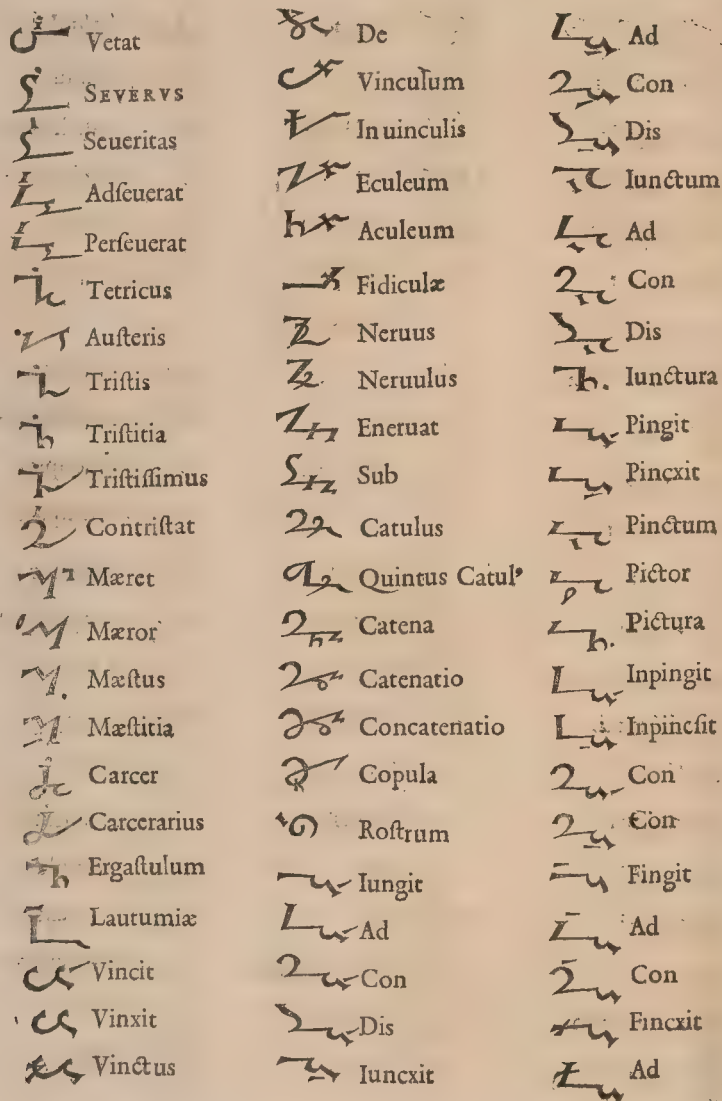 Vetat
SEVERVS
Seueritas
Adſeuerat
Perſeuerat
Tetricus
Auſteris
Triſtis
Triſtitia
Triſtiſſimus
Contriſtat
Mæret
Mæror
Mæſtus
Mæſtitia
Carcer
Carcerarius
Ergaſtulum
Lautumiæ
Vincit
Vinxit
Vinctus
De
Vinculum
In uinculis
Eculeum
Aculeum
Fidiculæ
Neruus
Neruulus
Eneruat
Sub
Catulus
Quintus Catul'
Catena
Catenatio
Concatenatio
Copula
Roſtrum
Iungit
Ad
Con
Dis
Iuncxit
Ad
Con
Dis
Iunctum
Ad
Con
Dis
Iunctura
Pingit
Pincxit
Pinctum
Pictor
Pictura
Inpingit
Inpincſit
Con
Con
Fingit
Ad
Con
Fincxit
Ad